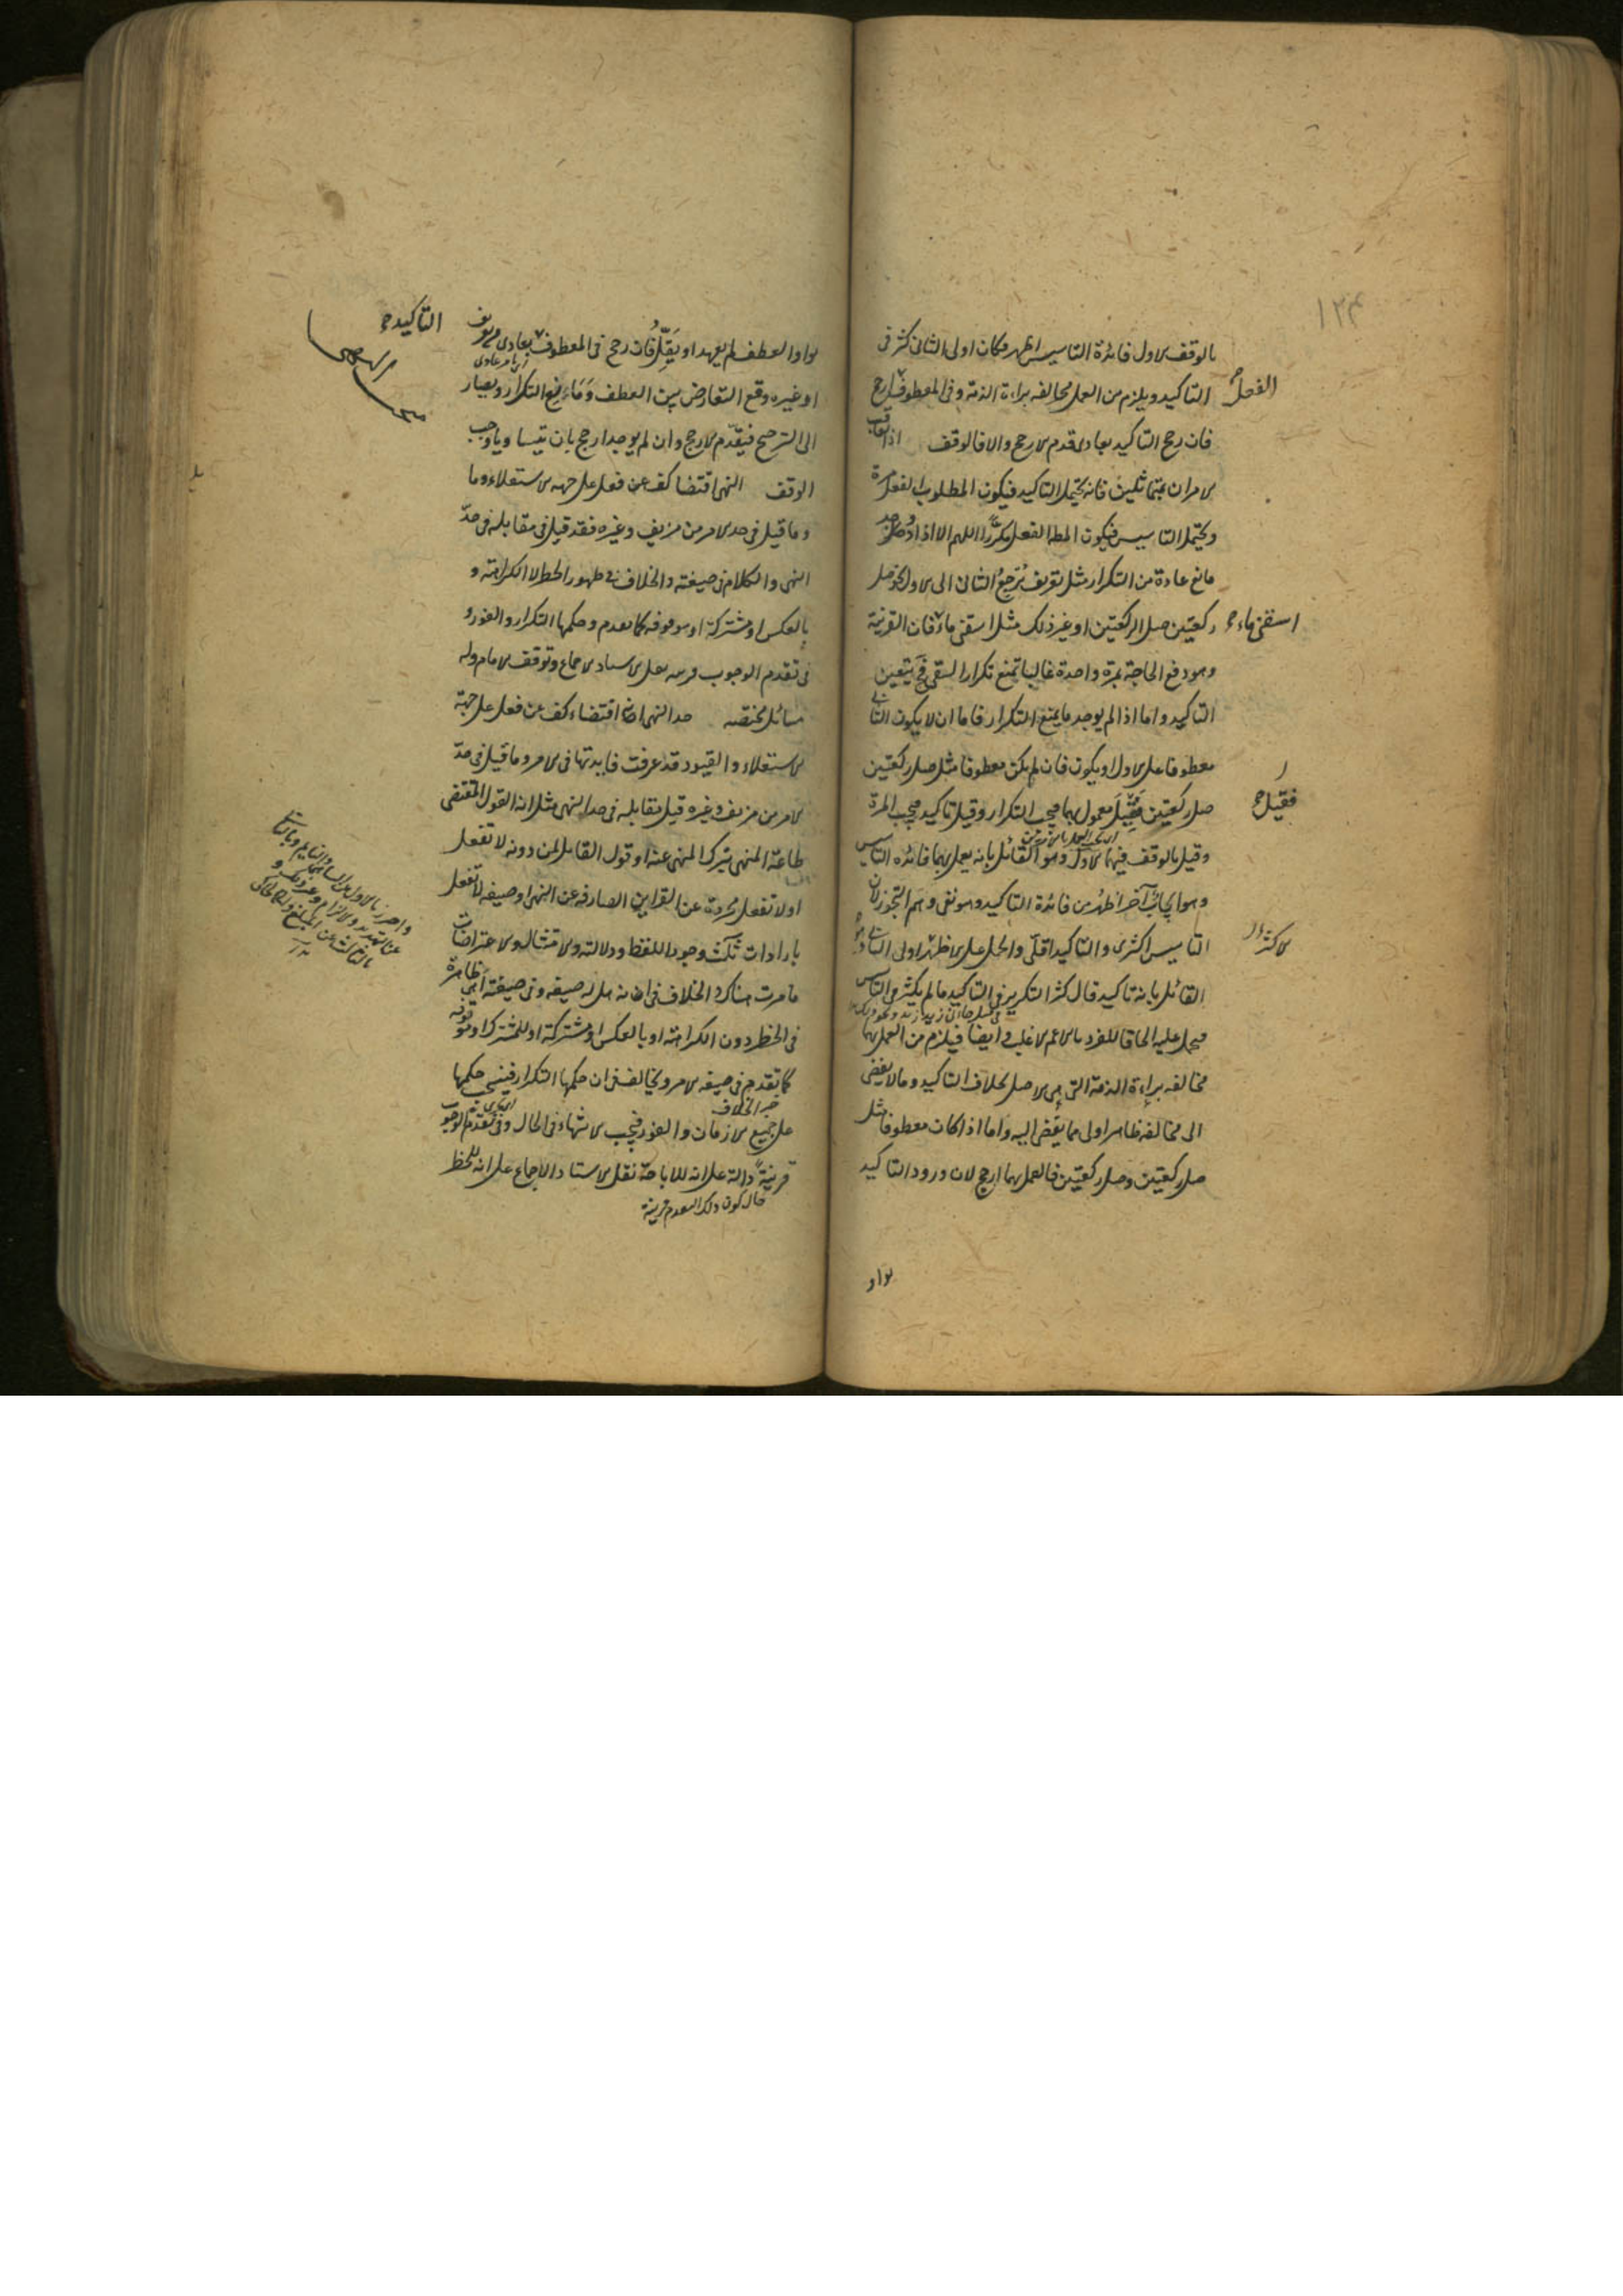 ١٢٤
بالوقف الاول فائدة التاسيس اظهر فكان اولى الثانى كثر فى
الفصل
التاكيد ويلزم من العمل مخالفه براءة الذمة وفى المعطوف ارجح
فان رجح التاكيد بعادى قدم الارجح والا فالوقف اذا تعاقب
الامران بمتماثلين فانه يحتمل التاكيد فيكون المطلوب الفعل مرة
ويحتمل التاسيس فيكون المط الفعل مكررا اللهم الا اذا
مانع عادة من التكرار مثل تعريف يُرجع الثانى الى الاول نحو صل
ركعتين صل الركعتين او غير ذلك مثل اسقنى ماء فان القرينة
اسقنى ماء
وهو دفع الحاجة بمرة واحدة غالبا تمنع تكرار السقى فح يتعين
التاكيد واما اذا لم يوجد ما يمنع التكرار فاما ان لا يكون الثانى
معطوفا على الاول او يكون فان لم يكن معطوفا مثل صل ركعتين
صل ركعتين فقيل معمول بهما فيجب التكرار وقيل تاكيد فيجب المرة
فقيل
وقيل بالوقف فيهما الاول وهو القائل بانه يعمل بهما فائدة التاسيس
وهو ايجاب آخر اظهر من فائدة التاكيد وهو نفى وهم التجوز لان
التاسيس اكثرى والتاكيد اقلى والحمل على الاظهر اولى الثانى
الاكثر
القائل بانه تاكيد قال كثر التكرير فى التاكيد ما لم يكثر فى التاسيس
فيحمل عليه الحاقا للفرد بالاعم الاغلب وايضا فيلزم من العمل بهما
مخالفه براءة الذمة التى هى الاصل بخلاف التاكيد وما لا يفضى
الى مخالفه ظاهر اولى مما يفضى اليه واما اذا كان معطوفا مثل
صل ركعتين وصل ركعتين فالعمل بهما ارجح لان ورود التاكيد
بواو
بواو العطف لم يعهد او يقل فان رجح فى المعطوف بعادى
التاكيد
او غيره وقع التعارض بين العطف ومانع التكرار ويصار
الى الترجيح فيقدم الارجح وان لم يوجد ارجح بان تيسا وياوجب
الوقف النهى اقتضا كف عن فعل على جهه الاستعلاء وما
وما قيل فى حد الامر من مزيف وغيره فقد قيل فى مقابله فى حد
النهى والكلام فى صيغته والخلاف فى ظهور الحظر لا الكراهة و
بالعكس او مشتركة او موقوفه كما تقدم وحكمها التكرار والفور و
فى تقدم الوجوب قرينه نقل الاستاد الاجماع وتوقف الامام وله
مسائل مختصه حد النهى اقتضاء كف عن فعل على جهة
الاستعلاء والقيود قد عرفت فايدتها فى الامر وما قيل فى حد
الامر من مزيف وغيره قيل مقابله فى حد النهى مثل انه القول المقتضى
طاعة المنهى بترك المنهى عنه او قول القايل لمن دونه لا تفعل
او لا تفعل مجردة عن القراين الصارفه عن النهى او صيغه لا تفعل
بارادات ثلث وجود اللفظ ودلالته والامتثال والاعتراضات
ما مرت هناك والخلاف فى انه هل له صيغه وفى صيغته اهى ظاهرة
فى الحظر دون الكراهة او بالعكس او مشتركة او للمشترك او موقوفه
كما تقدم فى صيغه الامر ويخالفه فى ان حكمها التكرار فينسحب حكمها
على جميع الازمان والفور فيجب الانتهاء فى الحال وفى تقدم الوجوب
قرينة دالة على انه للاباحة نقل الاستاد الاجماع على انه للحظر
حال كون ذلك التقدم قرينة